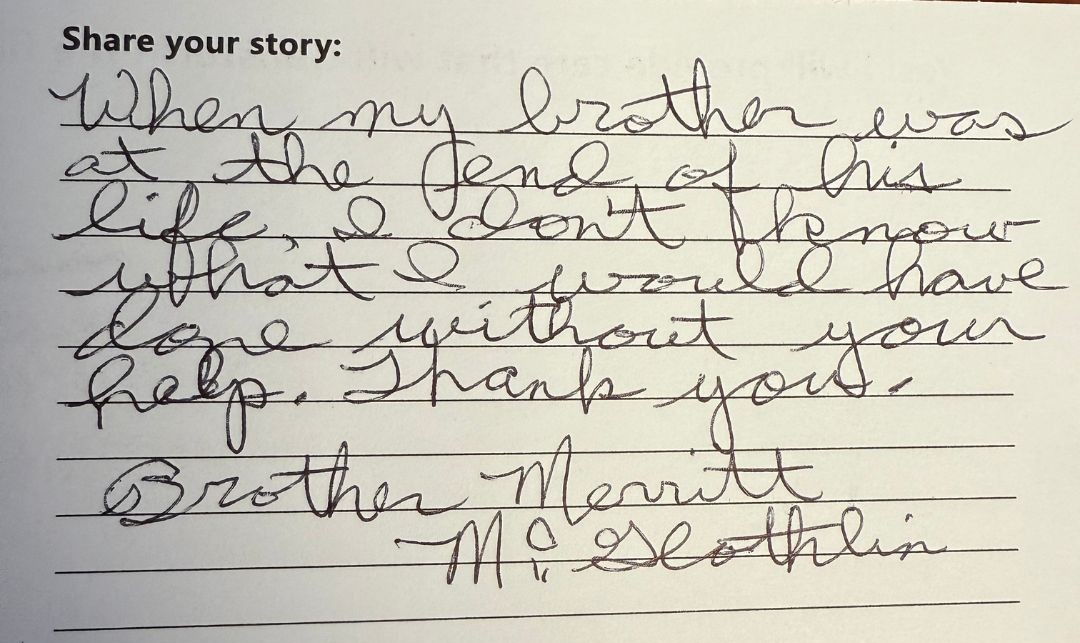 Share your story:
When my brother was
at the end of his
life, I don't know
what I would have
done without your
help. Thank you.
Brother Merritt
Mc Glothlin